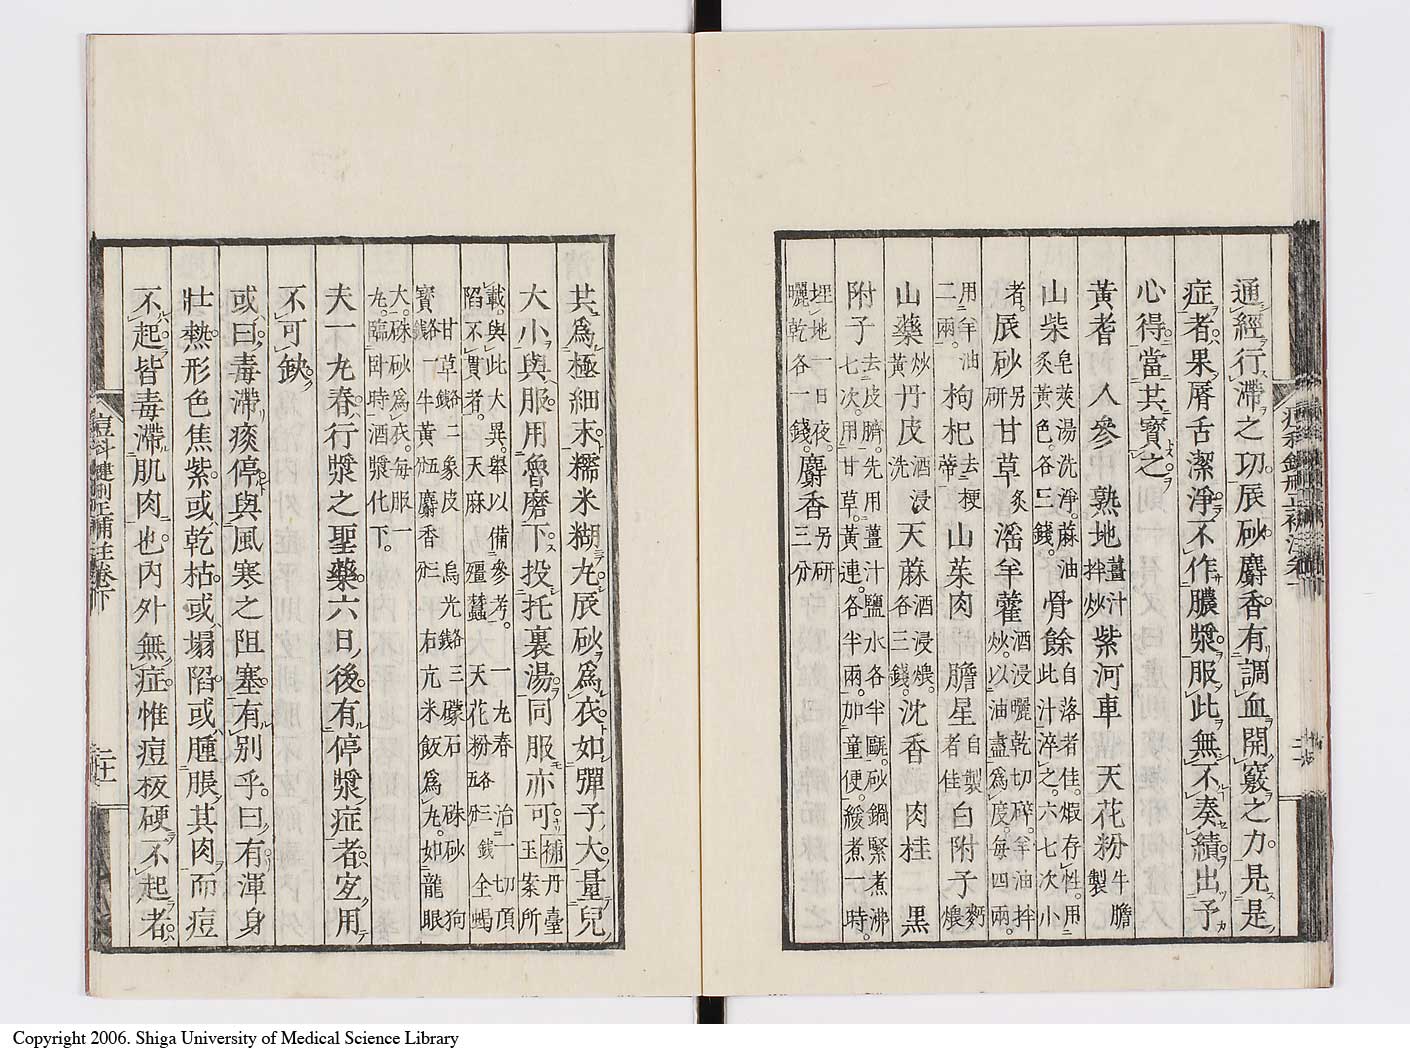 通經行滯之功辰砂麝香有調血開竅之力見是
症者果脣舌潔淨不作膿漿服此無不奏績出予
心得當其寳之
黃耆　人參　熟地薑汁拌炒紫河車　天花粉牛膽製
山柴皂莢湯洗淨蔴油炙黃色各三錢骨餘自落者佳煆存性用此汁淬之六七次小
者辰砂另研甘草炙滛羊藿酒浸曬乾切碎羊油拌炒以油盡爲度每四兩
用羊油二兩枸杞去梗蒂山茱肉　膽星自製者佳白附子麪煨
山藥炒黃丹皮酒洗天蔴酒浸煨各三錢沈香　肉桂　黑
附子去皮臍先用薑汁鹽水各半甌砂鍋緊煮沸七次用甘草黃連各半兩加童便緩煮一時
埋地一日夜曬乾各一錢麝香另研三分
其爲極細末糯米糊丸辰砂爲衣如彈子大量兒
大小與服用魯磨下投托裏湯同服亦可補丹臺玉案所
載與此大異舉以備參考一丸春治一切頂陷不實者天麻殭蠶天花粉五分錢全蝎
甘草二象皮烏光三礞石硃砂狗寳一牛黃五麝香三右亢米飯爲丸如龍眼
大硃砂爲衣每服一丸臨卧時酒漿化下
夫一丸春行漿之聖藥六日後有停漿症者宐用
不可缺
或曰毒滯痰停與風寒之阻塞有別乎曰有渾身
壯熱形色焦紫或乾枯或塌陷或腫脹其肉而痘
不起皆毒滯肌肉也內外無症惟痘板硬不起者
痘科鍵刪正補註卷下
二十